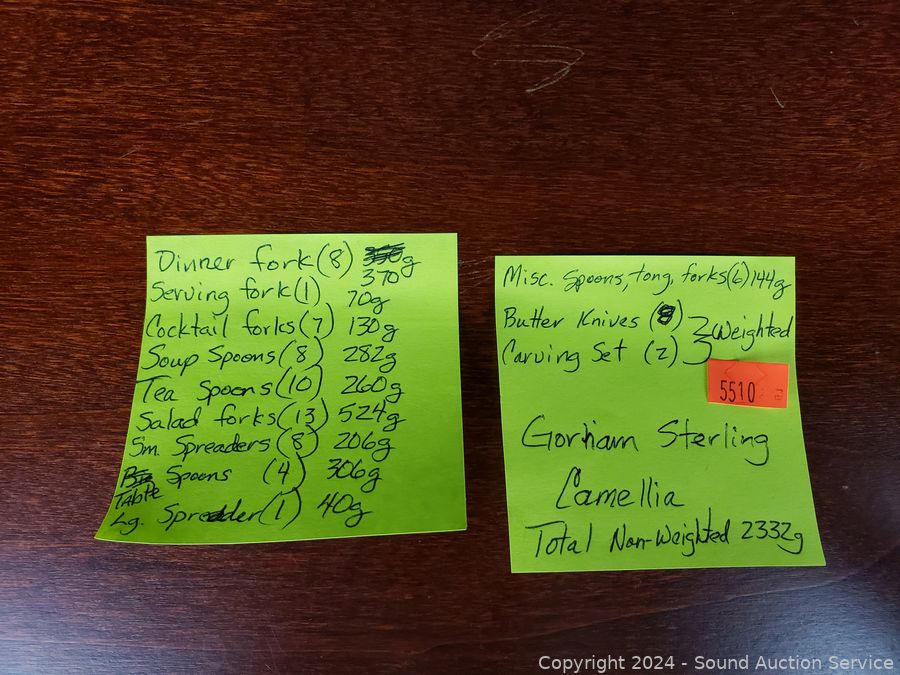 Dinner fork (8) g
370
Serving fork (1) 70g
Cocktail forks (7) 130g
Soup Spoons (8) 282g
Tea Spoons (10) 260g
Salad forks (13) 524g
Sm. Spreaders (8) 206g
Table Spoons (4) 306g
Lg. Spreader (1) 40g
Misc. Spoons, tong, forks (6) 144g
Butter Knives (8)
Carving Set (2) } Weighted
5510
Gorham Sterling
Camellia
Total Non-Weighted 2332g
Copyright 2024 - Sound Auction Service